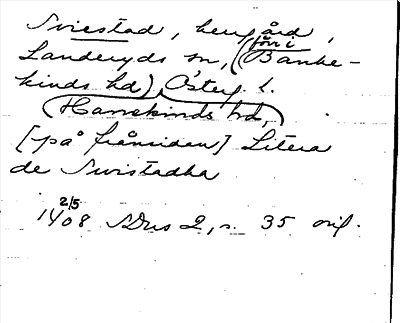 Sviestad, herrgård,
Landeryds sn, (förr i Banke-
kinds hd), Österg. l.
(Hanekinds hd,)
[på frånsidan] Litera
de Swistadha
1408 2/5 SDns 2, s. 35 orig.